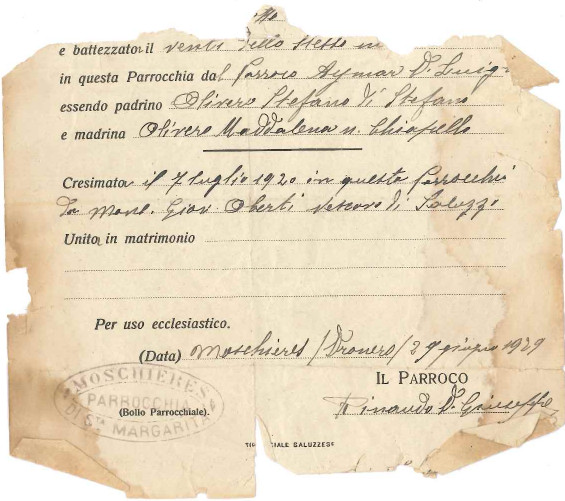 e battezzato il venti dello stesso m
in questa Parrocchia dal Parroco Aymar D. Luigi
essendo padrino Olivero Stefano di Stefano
e madrina Olivero Maddalena n. Chiapello
Cresimato il 7 luglio 1920 in questa Parrocchi
da Mons. Giov. Oberti Vescovo di Saluzzo
Unito in matrimonio
Per uso ecclesiastico.
(Data) Moschieres (Dronero) 29 giugno 1929
IL PARROCO
Rinaudo D. Giuseppe
MOSCHIÈRES
PARROCCHIA
DI Sta MARGARITA
(Bollo Parrocchiale).
TI CIALE SALUZZESE